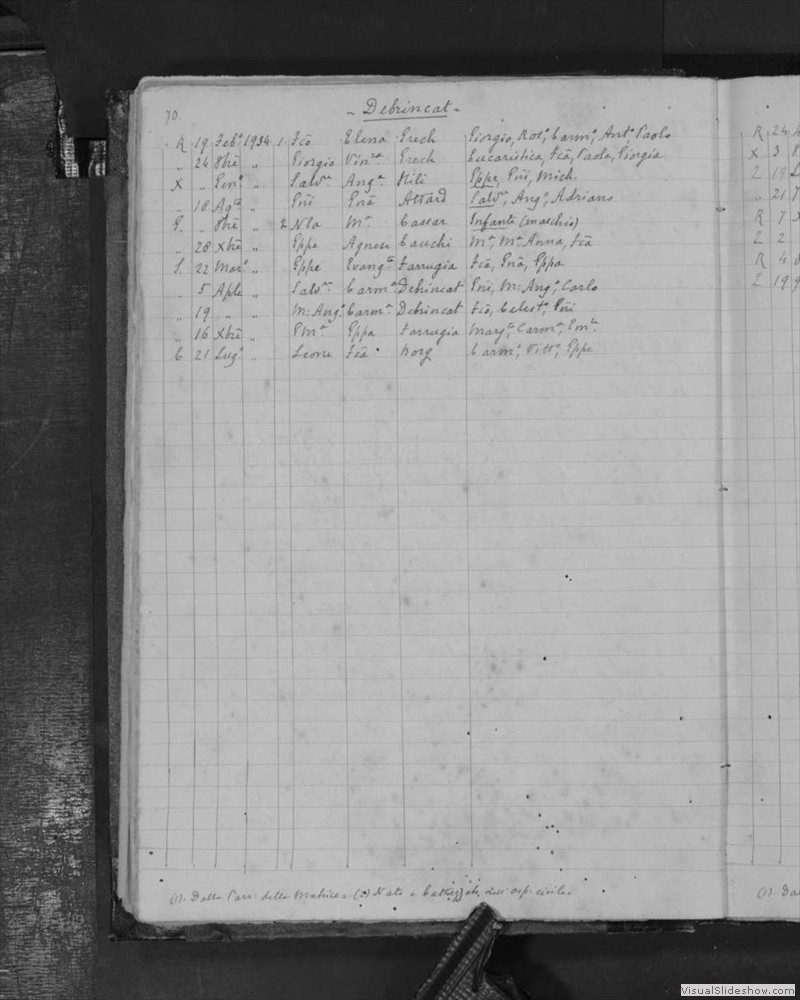 70.
- Debrincat -
R 19 Feb.º 1934 1 Fcõ Elena Grech Giorgio, Ros.ª, Carm.º, Ant.º Paolo
„ 24 8brẽ „ Giorgio Vin.za Grech Eucaristica, Fcã, Paolo, Giorgia
X „ Gen.º „ Salv.re Ang.ª Gppe, Gñi, Mich.
„ 18 Ag.to „ Gñi Gnã Attard Salv.re, Ang.º, Adriano
G. „ 8brẽ „ 2 Nla M.ª Cassar Infante (maschio)
„ 28 Xbrẽ „ Gppe Agnese Cauchi M.ª, M.ª Anna, Fcã
S. 22 Mar.º „ Gppe Evang.ta Farrugia Fcã, Gnã, Gppa
„ 5 Aple „ Salv.re Carm.ª Debrincat Gñi, M: Ang.º, Carlo
„ 19 „ „ M: Ang.º Carm.ª Debrincat Fcõ, Celest.º, Gñi
„ 16 Xbrẽ „ Em.le Gppa Farrugia Marg.ta, Carm.ª, Em.le
C 21 Lug.º „ Leone Fcã Borg Carm.º, Vitt.º, Gppe
(1). Dalla Parr: della Matrice (2) Nato e battezzato nell'osp: civile.
R 24
X 3
Z 19
„ 21
R 7
Z 2
R 4
Z 19
(1). Da
VisualSlideshow.com